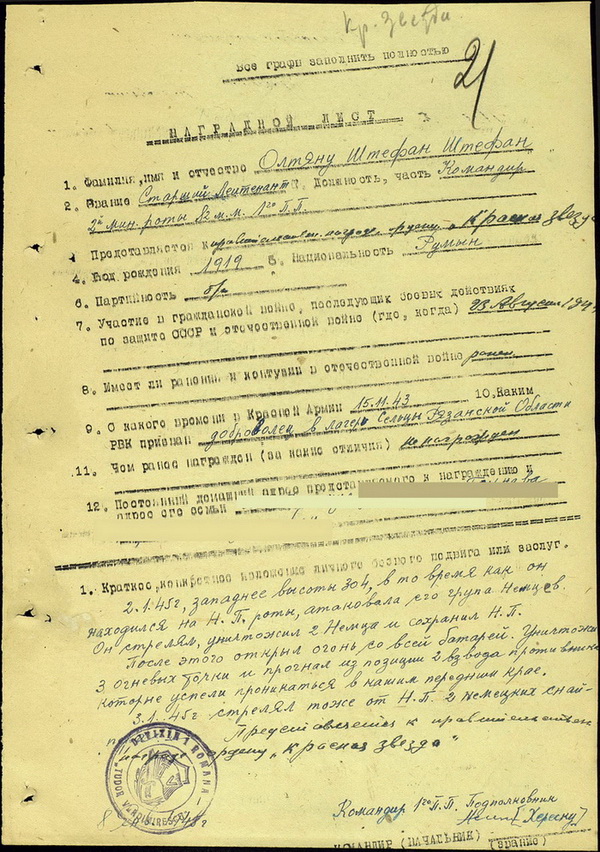 Кр. Звезда
Все графы заполнить полностью
21
НАГРАДНОЙ ЛИСТ
1. Фамилия, имя и отчество Олтяну Штефан Штефан
2. Звание Старший Лейтенант 3. Должность, часть Командир
2й мин. роты 82 м.м. 1го П.П.
Представляется к ордену "Красная звезда
4. Год рождения 1919 5. Национальность Румын
6. Партийность б/п
7. Участие в гражданской войне, последующих боевых действиях
по защите СССР и отечественной войне (где, когда) 23 Августа 194
8. Имеет ли ранения и контузии в отечественной войне ранен
9. С какого времени в Красной Армии 15.11.43 10. Каким
РВК призван доброволец в лагере Сельцы Рязанской Области
11. Чем ранее награжден (за какие отличия) не награжден
12. Постоянный домашний адрес представляемого к награждению и
адрес его семьи
1. Краткое, конкретное изложение личного боевого подвига или заслуг.
2.1.45г, западнее высоты 304, в то время как он
находился на Н.П. роты, атаковала его група Немцев.
Он стрелял, уничтожил 2 Немца и сохранил Н.П.
После этого открыл огонь со всей батарей. Уничтожи
3 огневых точки и прогнал из позиции 2 взвода противника
которые успели проникаться в нашим передним крае.
3.1.45г стрелял тоже от Н.П. 2 немецких снай-
Представляется к правительствен
ордену "Красная звезда"
DIVIZIA I ROMANA
"TUDOR VLADIMIRESCU"
Командир 1го П.П. Подполковник
КОМАНДИР (НАЧАЛЬНИК) (звание)